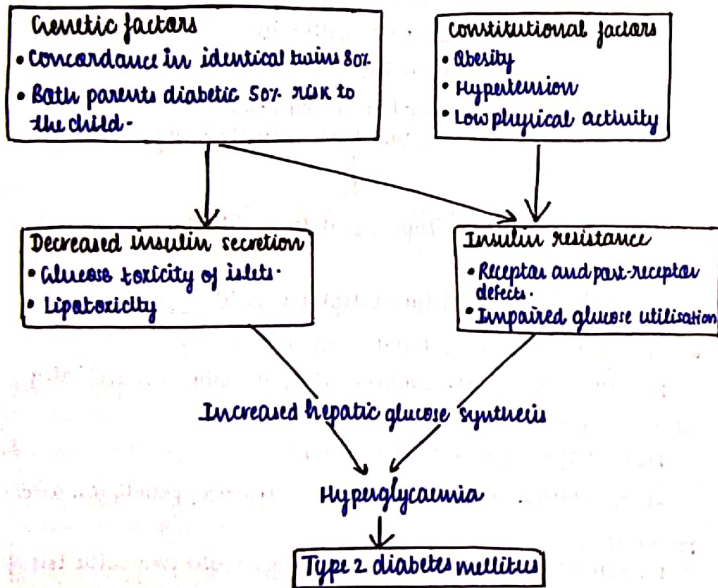 Genetic factors
• Concordance in identical twins 80%
• Both parents diabetic 50% risk to
the child.
Constitutional factors
• Obesity
• Hypertension
• Low physical activity
Decreased insulin secretion
• Glucose toxicity of islets.
• Lipotoxicity
Insulin resistance
• Receptor and post-receptor
defects.
• Impaired glucose utilisation
Increased hepatic glucose synthesis
Hyperglycaemia
Type 2 diabetes mellitus